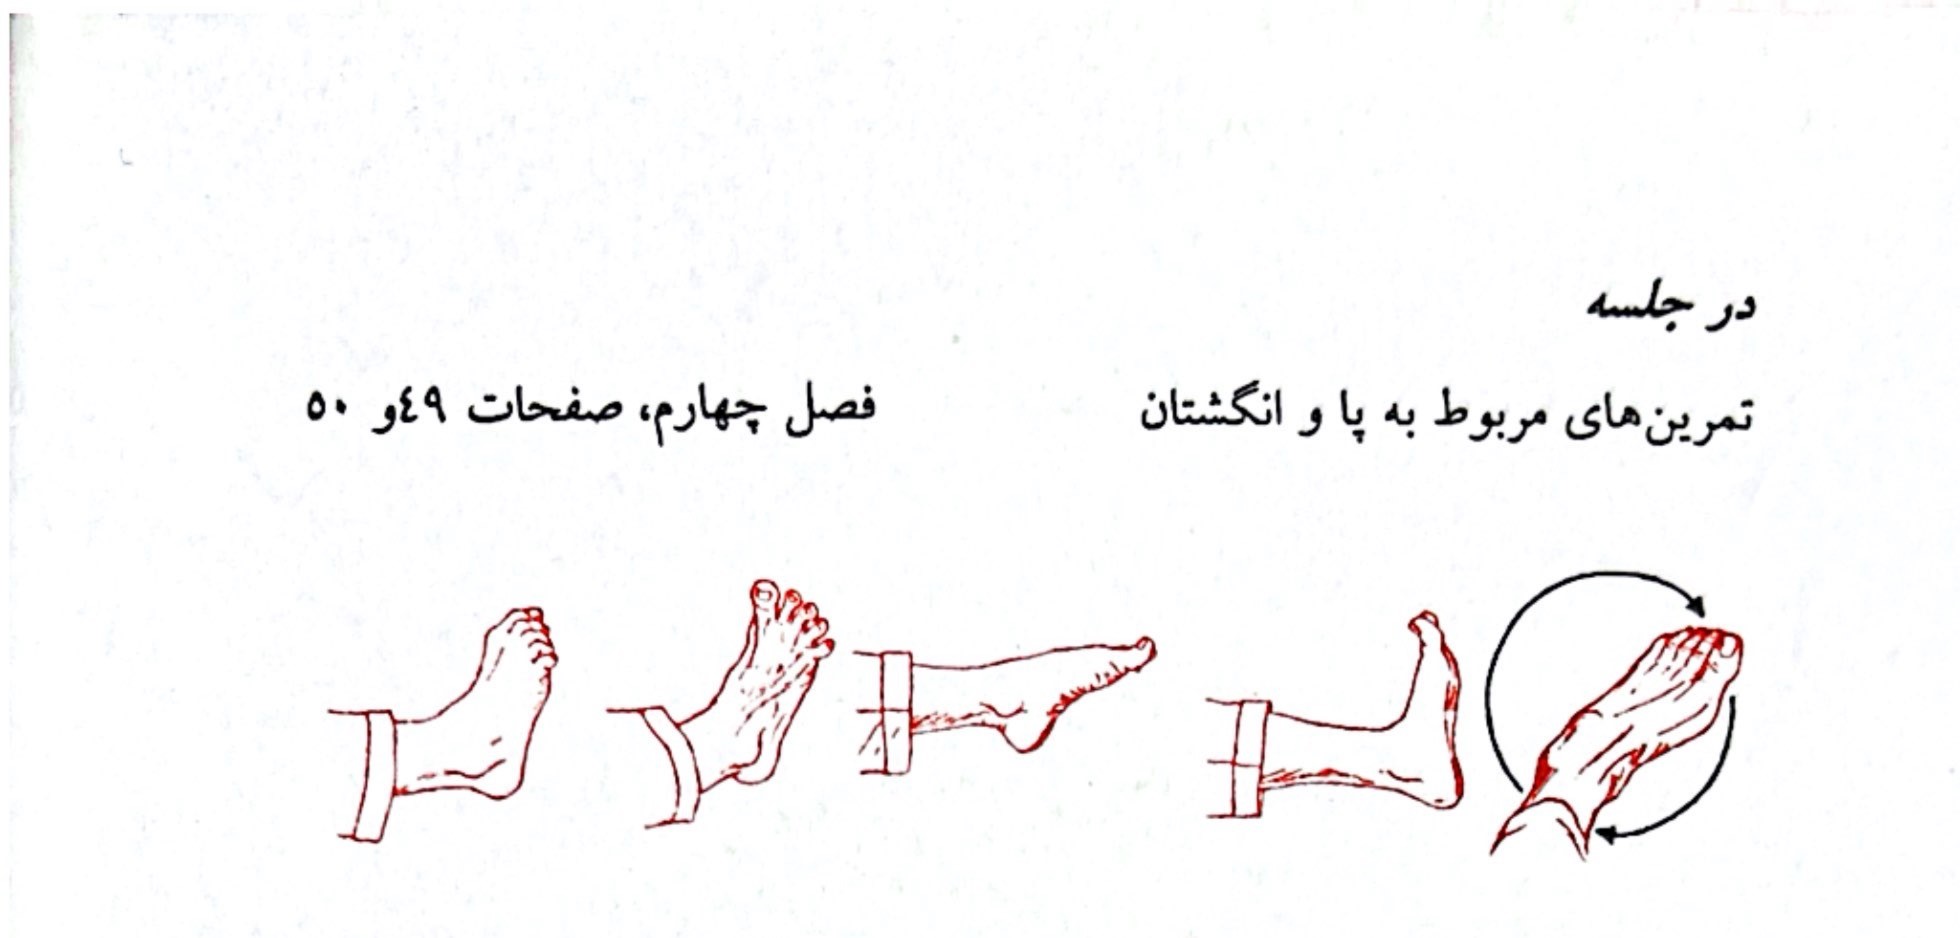 در جلسه
تمرین‌های مربوط به پا و انگشتان فصل چهارم، صفحات ٤٩و ٥٠